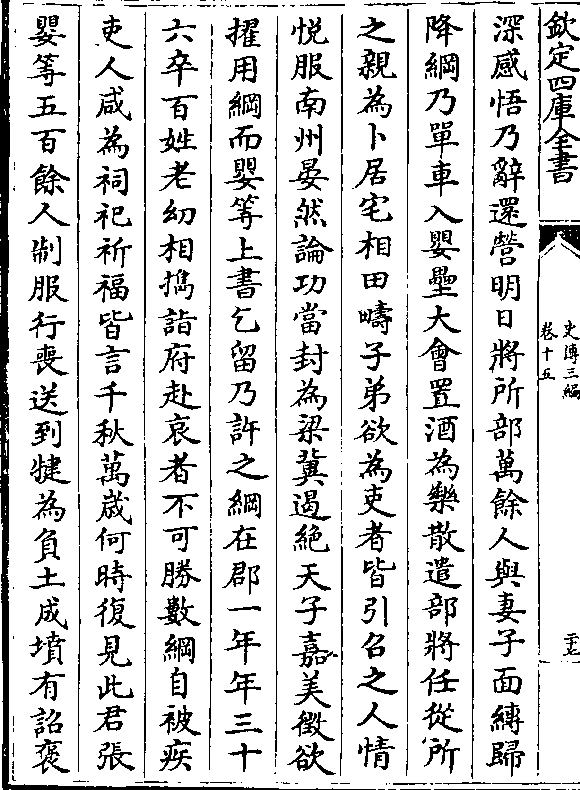 欽定四庫全書
史傳三編
卷十五
深感悟乃辭還營明日將所部萬餘人與妻子面縛歸
降綱乃單車入嬰壘大會置酒為樂散遣部將任從所
之親為卜居宅相田疇子弟欲為吏者皆引召之人情
悅服南州晏然論功當封為梁冀遏絕天子嘉美徵欲
擢用綱而嬰等上書乞留乃許之綱在郡一年年三十
六卒百姓老幼相攜詣府赴哀者不可勝數綱自被疾
吏人咸為祠祀祈福皆言千秋萬歲何時復見此君張
嬰等五百餘人制服行喪送到犍為負土成墳有詔褒